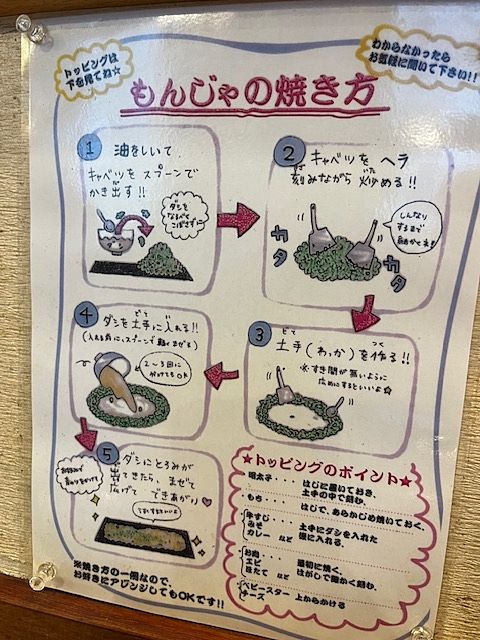 トッピングは
下を見てね☆
わからなかったら
お気軽に聞いて下さい!!
もんじゃの焼き方
1 油をしいて
キャベツをスプーンで
かき出す!!
ダシを
なるべく
こぼさずに
2 キャベツを ヘラ
刻みながら 炒める!!
しんなり
するまで
カタ
カタ
3 土手(わっか)を作る!!
どて
つく
※すき間が無いように
広めにするといいよ☆
4 ダシを土手に入れる!!
どて
(入れる前に、スプーンで軽くまぜる)
2〜3回に
わけてもOK
5 ダシにとろみが
出てきたら、まぜて
広げて できあがり♡
※焼き方の一例なので、
お好きにアレンジしてもOKです!!
★トッピングのポイント★
明太子・・・はじに置いておき、
土手の中で刻む。
もち・・・はじで、あらかじめ焼いておく。
牛すじ
みそ
カレー など
・・・土手にダシを入れた
後に入れる。
お肉
エビ
ほたて など
・・・最初に焼く。
はがして細かく刻む。
ベビースター
チーズ
上からかける